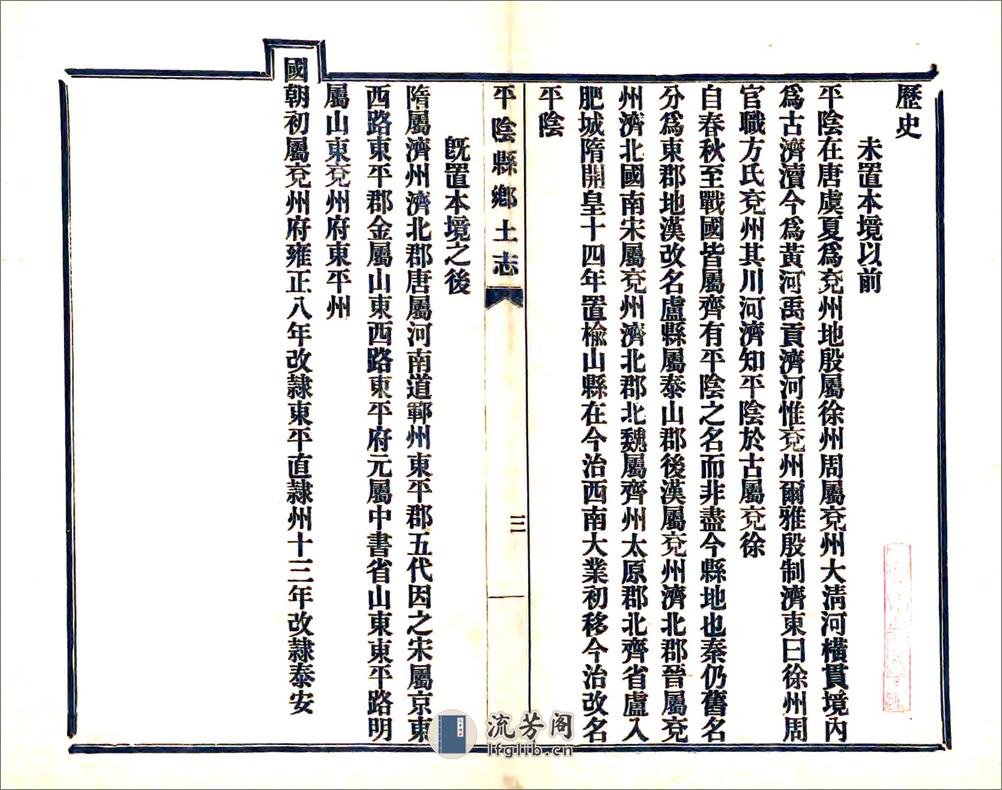 歷史
未置本境以前
平陰在唐虞夏爲兗州地殷屬徐州周屬兗州大淸河橫貫境內
爲古濟瀆今爲黃河禹貢濟河惟兗州爾雅殷制濟東曰徐州周
官職方氏兗州其川河濟知平陰於古屬兗徐
自春秋至戰國皆屬齊有平陰之名而非盡今縣地也秦仍舊名
分爲東郡地漢改名盧縣屬泰山郡後漢屬兗州濟北郡晉屬兗
州濟北國南宋屬兗州濟北郡北魏屬齊州太原郡北齊省盧入
肥城隋開皇十四年置楡山縣在今治西南大業初移今治改名
平陰
平陰縣鄉土志
三
旣置本境之後
隋屬濟州濟北郡唐屬河南道鄆州東平郡五代因之宋屬京東
西路東平郡金屬山東西路東平府元屬中書省山東東平路明
屬山東兗州府東平州
國朝初屬兗州府雍正八年改隸東平直隸州十三年改隸泰安
流芳阁
lfglib.cn